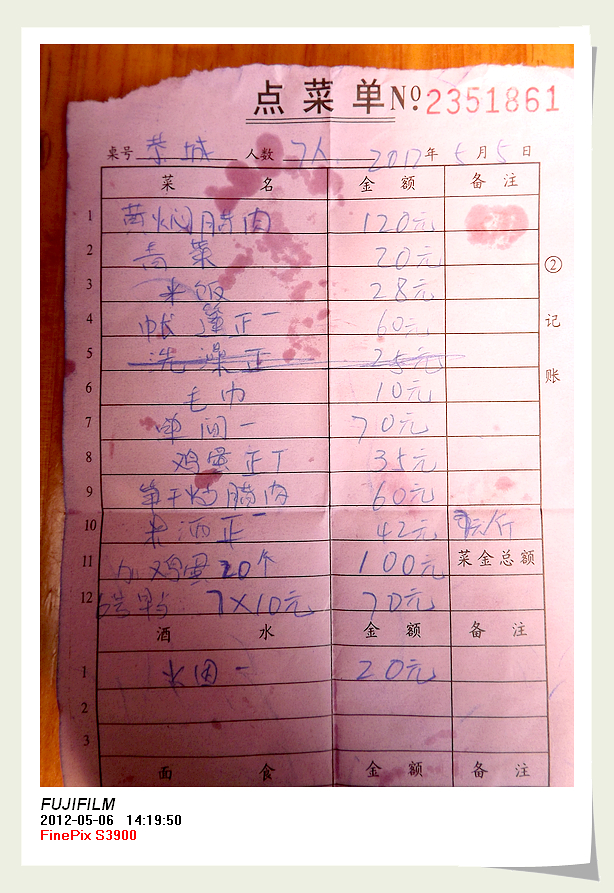 点菜单 №2351861
桌号 恭城 人数 7人 2012年5月5日
菜名 金额 备注
1 焖腊肉 120元
2 青菜 20元
3 米饭 28元
4 帐篷正一 60元
② 记账
5 洗澡正 25元
6 毛巾 10元
7 单间一 70元
8 鸡蛋正丅 35元
9 笋干炒腊肉 60元
10 米酒正一 42元 元/斤
11 鸡蛋20个 100元 菜金总额
12 7×10元 70元
酒水 金额 备注
1 水 一 20元
2
3
面食 金额 备注
FUJIFILM
2012-05-06 14:19:50
FinePix S3900